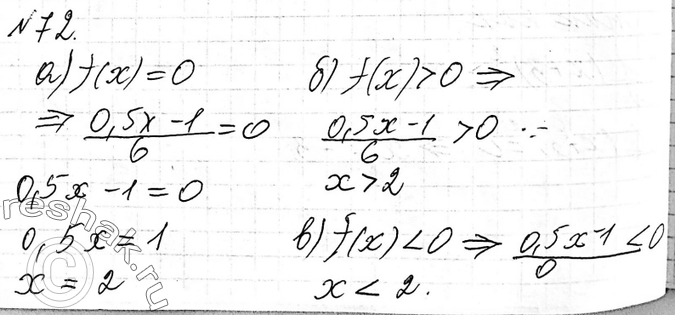 №72.
а) f(x)=0
⇒ (0,5x-1)/6 = 0
0,5x-1=0
0,5x=1
x=2
б) f(x)>0 ⇒
(0,5x-1)/6 >0
x>2
в) f(x)<0 ⇒ (0,5x-1)/0 <0
x<2.
reshak.ru